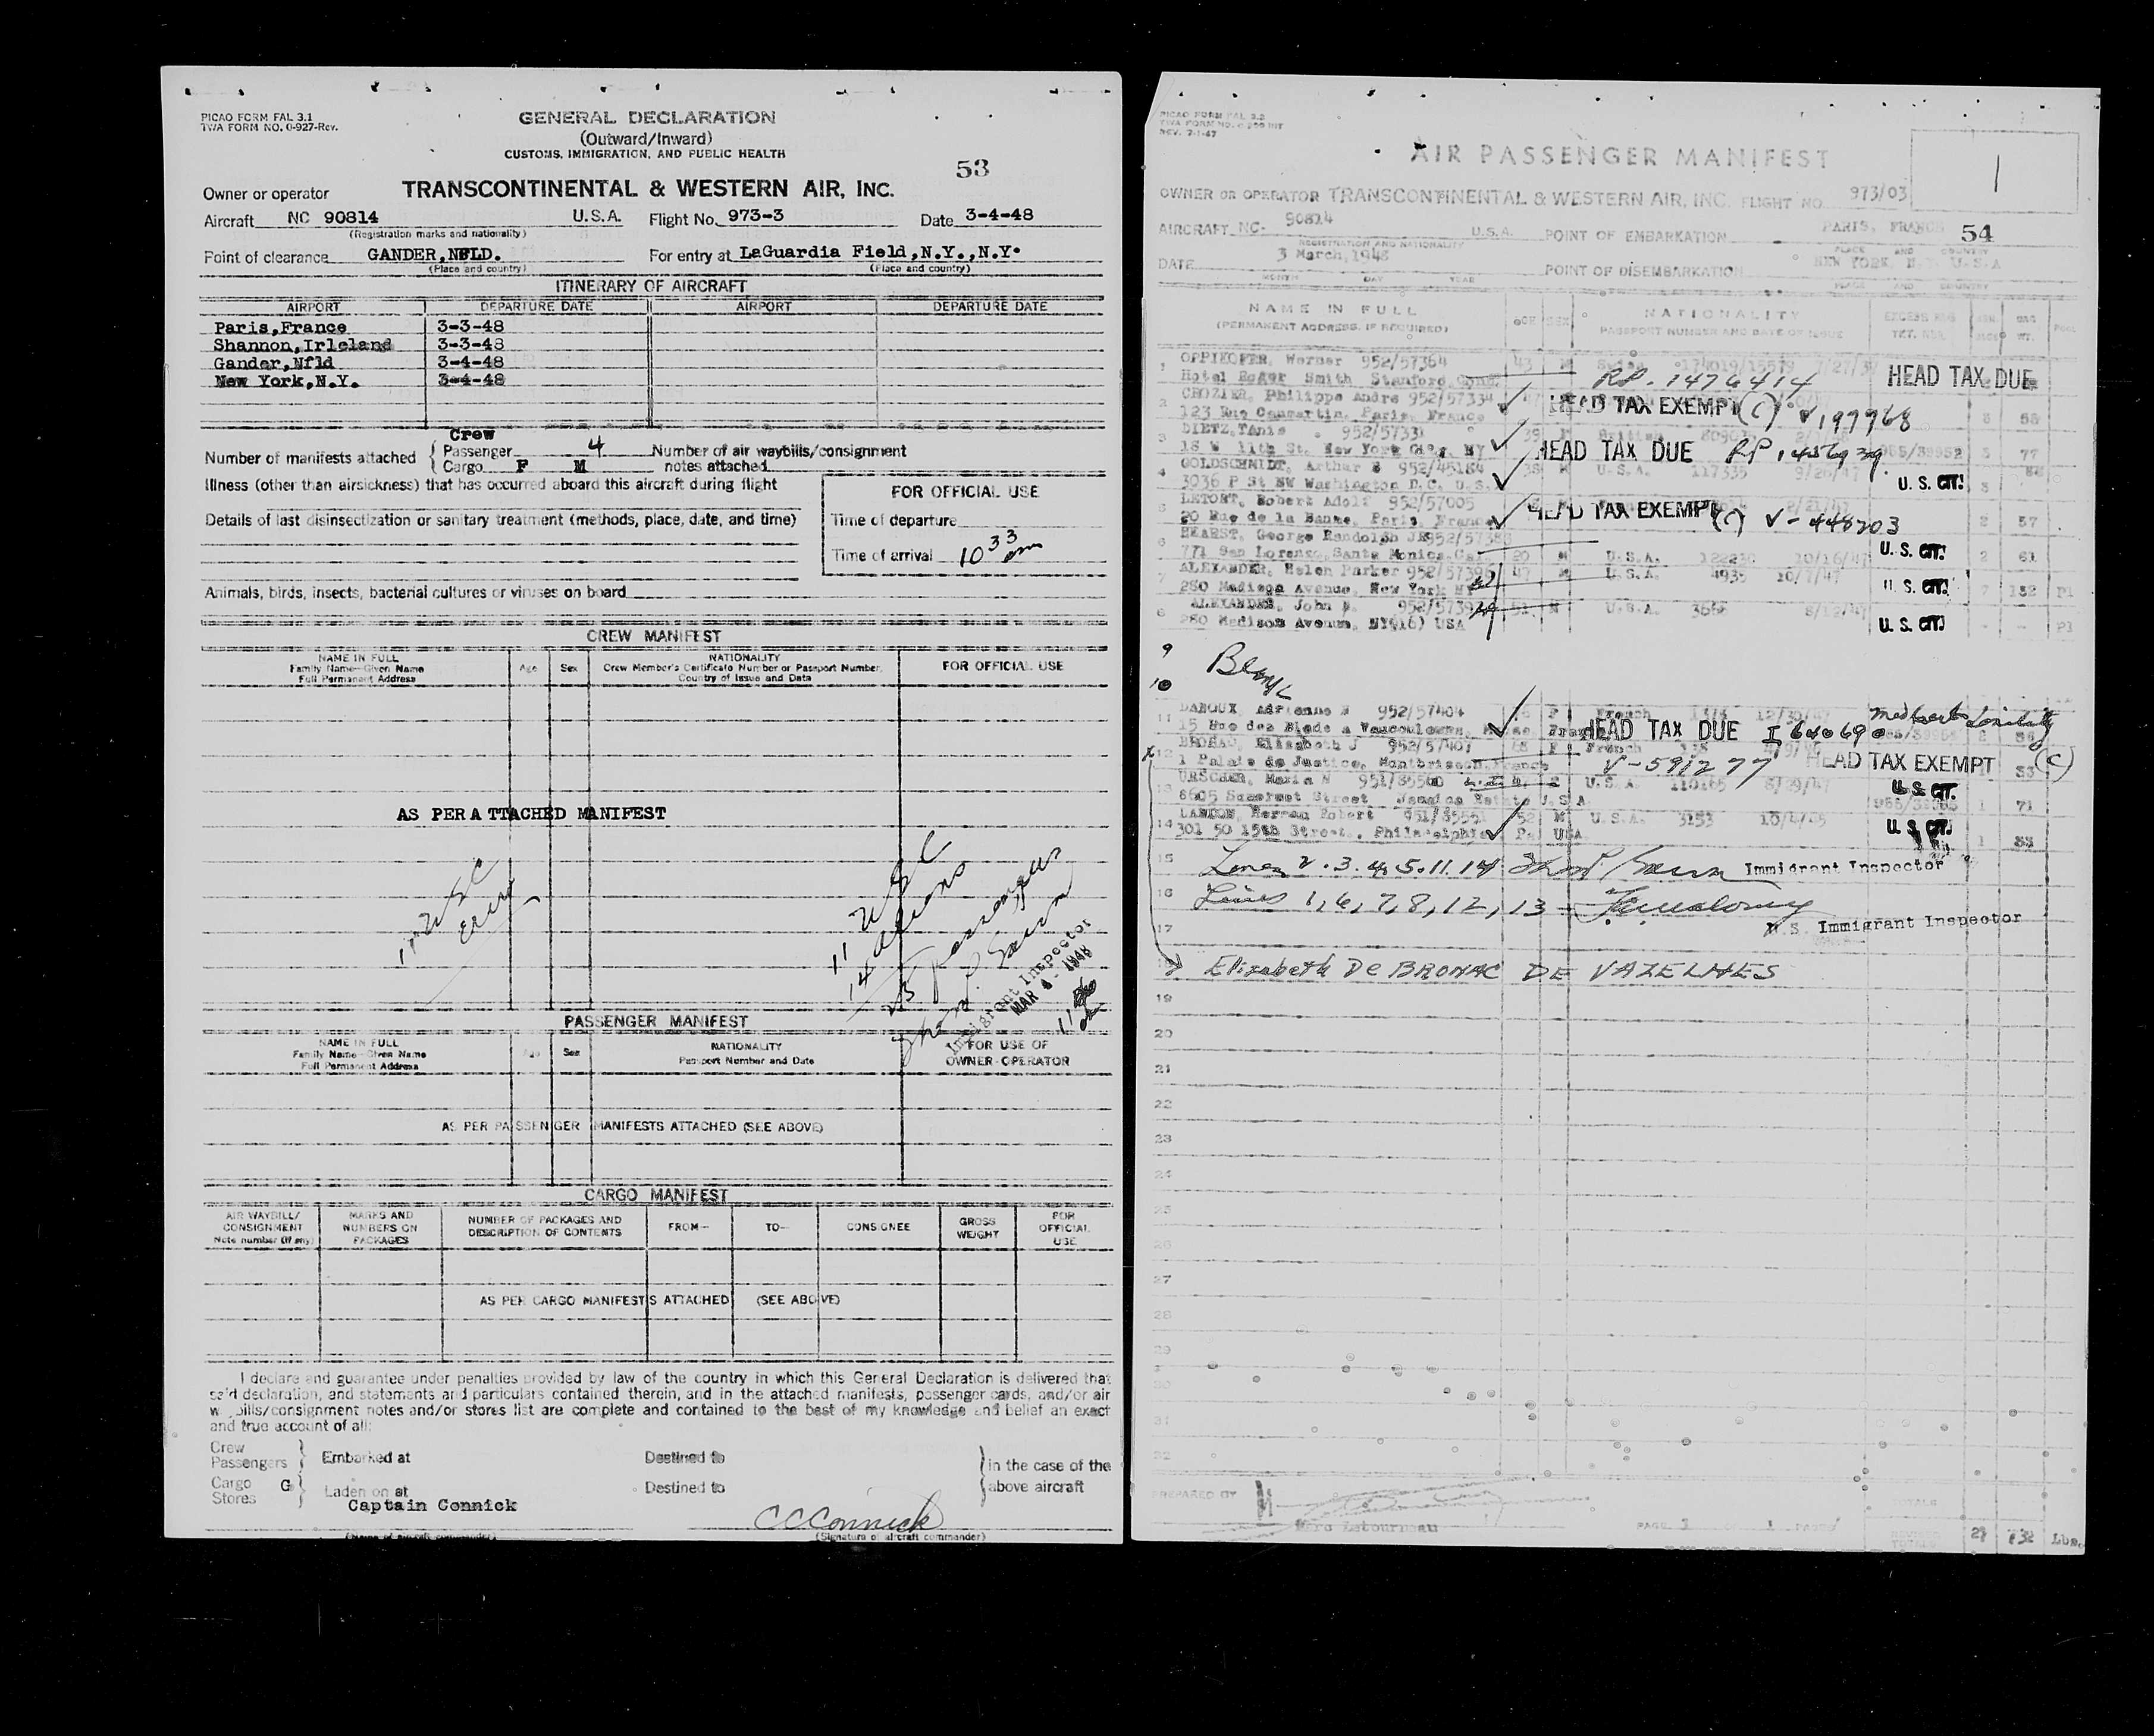 PICAO FORM FAL 3.1
TWA FORM NO. 0-927-Rev.
GENERAL DECLARATION
(Outward/Inward)
CUSTOMS, IMMIGRATION, AND PUBLIC HEALTH
53
Owner or operator TRANSCONTINENTAL & WESTERN AIR, INC.
Aircraft NC 90814 U.S.A. Flight No. 973-3 Date 3-4-48
(Registration marks and nationality)
Point of clearance GANDER,NFLD. For entry at LaGuardia Field,N.Y.,N.Y.
(Place and country) (Place and country)
ITINERARY OF AIRCRAFT
AIRPORT DEPARTURE DATE AIRPORT DEPARTURE DATE
Paris,France 3-3-48
Shannon,Irleland 3-3-48
Gander,Nfld 3-4-48
New York,N.Y. 3-4-48
Crew
Number of manifests attached Passenger 4 Number of air waybills/consignment
Cargo F M notes attached
Illness (other than airsickness) that has occurred aboard this aircraft during flight
FOR OFFICIAL USE
Details of last disinsectization or sanitary treatment (methods, place, date, and time)
Time of departure
Time of arrival 10 33 am
Animals, birds, insects, bacterial cultures or viruses on board
CREW MANIFEST
NAME IN FULL
Family Name—Given Name
Full Permanent Address
Age Sex
NATIONALITY
Crew Member's Certificate Number or Passport Number,
Country of Issue and Date
FOR OFFICIAL USE
AS PER ATTACHED MANIFEST
11 USC
14 aliens
25 passengers
Immigrant Inspector
MAR 4 - 1948
PASSENGER MANIFEST
NAME IN FULL
Family Name—Given Name
Full Permanent Address
Age Sex
NATIONALITY
Passport Number and Date
FOR USE OF
OWNER-OPERATOR
AS PER PASSENGER MANIFESTS ATTACHED (SEE ABOVE)
CARGO MANIFEST
AIR WAYBILL/
CONSIGNMENT
Note number (if any)
MARKS AND
NUMBERS ON
PACKAGES
NUMBER OF PACKAGES AND
DESCRIPTION OF CONTENTS
FROM— TO— CONSIGNEE
GROSS
WEIGHT
FOR
OFFICIAL
USE
AS PER CARGO MANIFESTS ATTACHED (SEE ABOVE)
I declare and guarantee under penalties provided by law of the country in which this General Declaration is delivered that
said declaration, and statements and particulars contained therein, and in the attached manifests, passenger cards, and/or air
bills/consignment notes and/or stores list are complete and contained to the best of my knowledge and belief an exact
and true account of all:
Crew
Passengers Embarked at Destined to in the case of the
Cargo G
Stores Laden on at Destined to above aircraft
Captain Connick
CCConnick
(Signature of aircraft commander)
PICAO FORM FAL 3.2
REV. 7-1-47
AIR PASSENGER MANIFEST
1
OWNER OR OPERATOR TRANSCONTINENTAL & WESTERN AIR, INC. FLIGHT NO. 973/03
AIRCRAFT NC- 90814 U.S.A. POINT OF EMBARKATION PARIS, FRANCE 54
REGISTRATION AND NATIONALITY PLACE AND COUNTRY
DATE 3 March, 1948 POINT OF DISEMBARKATION NEW YORK, N.Y. U.S.A
MONTH DAY YEAR PLACE AND COUNTRY
NAME IN FULL
(PERMANENT ADDRESS, IF REQUIRED)
AGE SEX
NATIONALITY
PASSPORT NUMBER AND DATE OF ISSUE
1 OPPIKOFER, Werner 952/57364 43 M
Hotel Roger Smith Stanford Conn. RP. 1476414 HEAD TAX DUE
2 CROZIER, Philippe Andre 952/57334
123 Rue Caumartin, Paris, France HEAD TAX EXEMPT (C) V197768
3 DIETZ, Tania 952/5733 39
18 W 11th St. New York City NY HEAD TAX DUE RP 77
4 GOLDSCHMIDT, Arthur E 952/45184 38 M U.S.A. 117335 9/26/47
3036 P St NW Washington D.C. U.S. U. S. CIT.
5 LETORT, Robert Adolf 952/57005
20 Rue de la Banque, Paris, France HEAD TAX EXEMPT (C) V-448203 2 57
6 HEARST, George Randolph JR 952/57388 20 M U.S.A. 10/16/47 2 61
771 San Lorenzo, Santa Monica Ca. U. S. CIT.
7 ALEXANDER, Helen Parker 952/57396 47 U.S.A. 4935 10/7/47
280 Madison Avenue, New York NY U. S. CIT. 132
8 ALEXANDER, John U.S.A.
280 Madison Avenue, NY(16) USA U. S. CIT.
9 Blank
10
11 DAROUX, Adrienne M 952/57404 F French
15 Rue des Blede a Vaucouleurs, Meuse, France HEAD TAX DUE I 640690
12 BRONAC, Elisabeth J 952/57407 F French
1 Palais de Justice, Montbrison, France V-591277 HEAD TAX EXEMPT (C)
13 URSCHER, Maria M U.S.A. 110165 8/29/47
8605 Somerset Street Jamaica Estate U.S.A U. S. CIT. 71
14 LANDON, Herman Robert 951/35551 52 M U.S.A. 3153
301 50 15th Street, Philadelphia Pa USA U. S. CIT.
15 Lines 2.3.4.5.11.14 Immigrant Inspector
16 Lines 1, 6, 7, 8, 12, 13
17 U.S. Immigrant Inspector
Elizabeth De BRONAC DE VAZELHES
19
20
21
22
23
24
25
26
27
28
29
30
31
32
PREPARED BY
Marc Letourneau
TOTALS
Lbs.